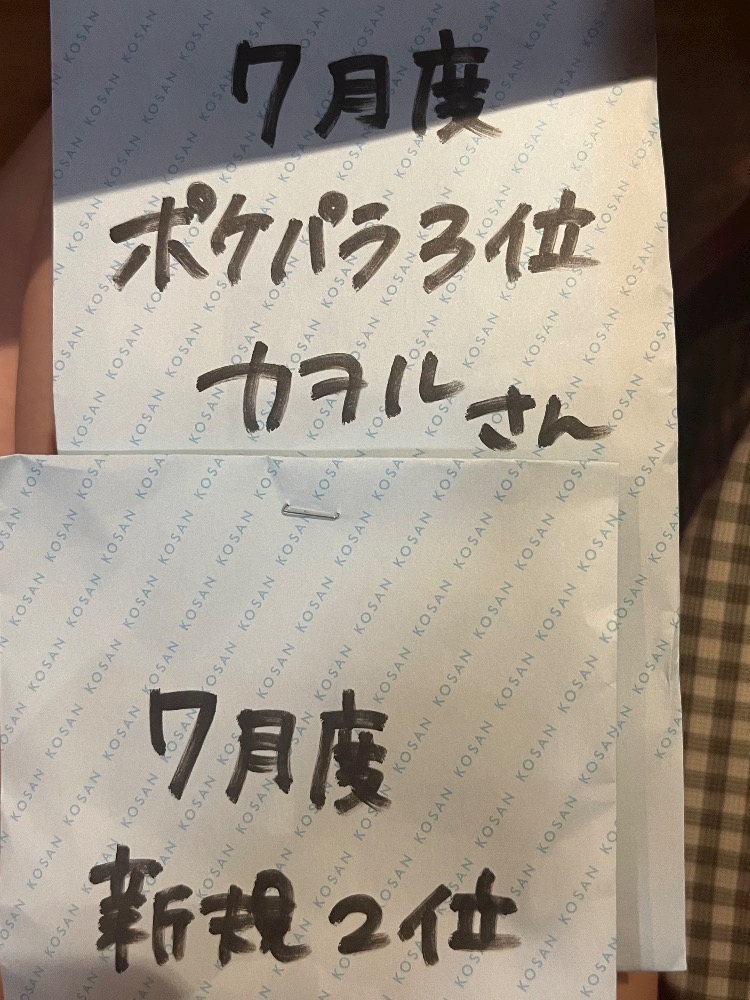 7月度
ポケパラ3位
カヲルさん
7月度
新規2位
KOSAN